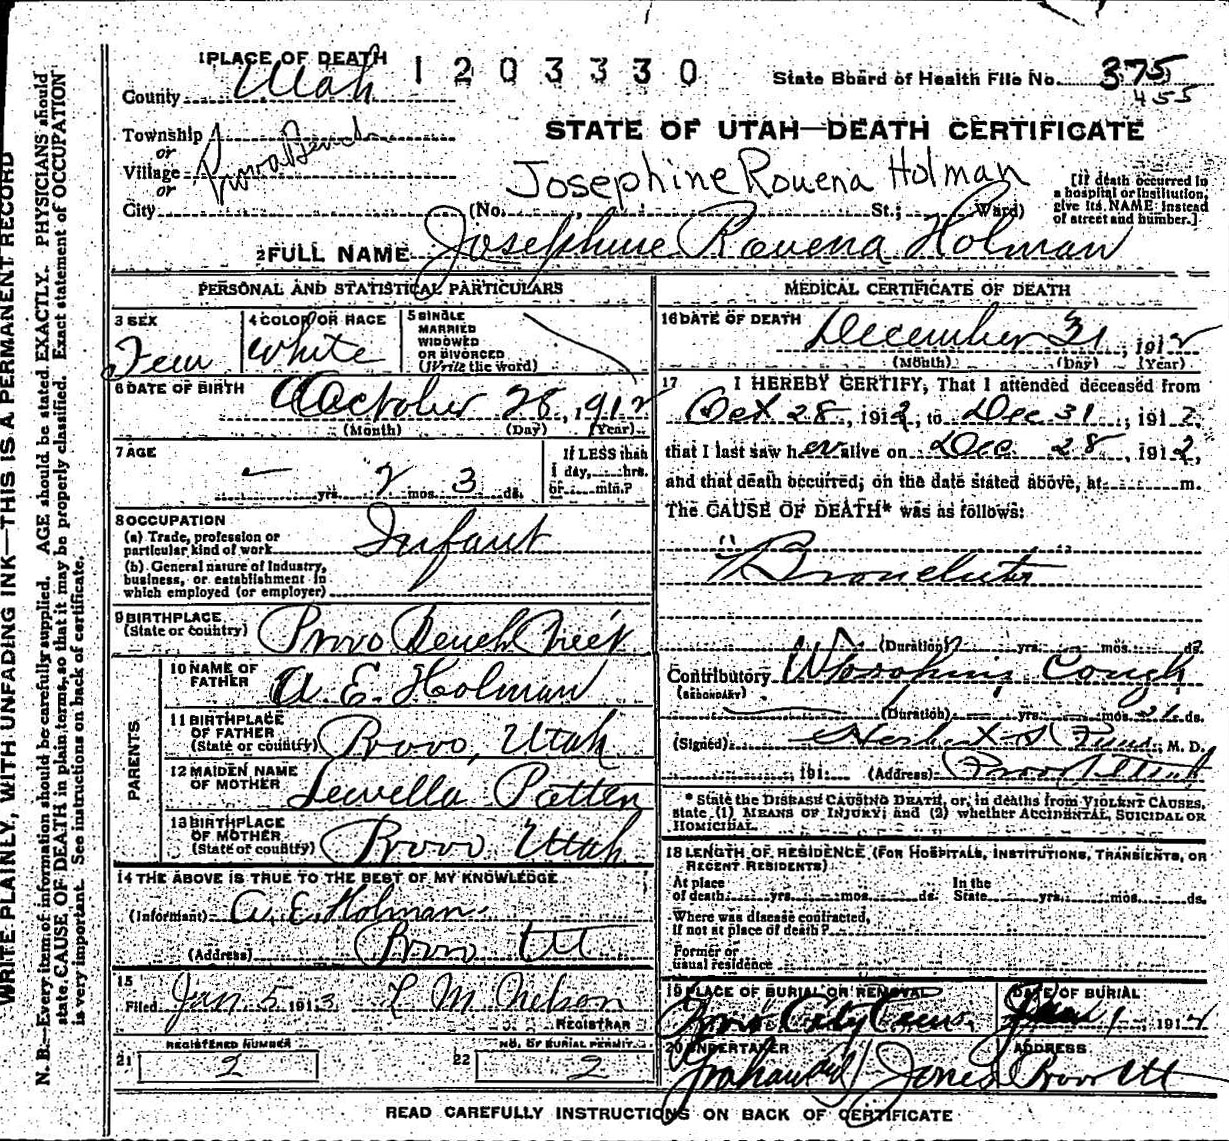 1 PLACE OF DEATH
1203330
State Board of Health File No. 375
455
County Utah
STATE OF UTAH—DEATH CERTIFICATE
Township
or
Village Provo Bench
or
Josephine Rouena Holman
[If death occurred in
a hospital or institution,
give its NAME instead
of street and number.]
City (No. St.; Ward)
2 FULL NAME Josephine Rouena Holman
PERSONAL AND STATISTICAL PARTICULARS
3 SEX
Fem
4 COLOR OR RACE
White
5 SINGLE
MARRIED
WIDOWED
OR DIVORCED
(Write the word)
6 DATE OF BIRTH
October 28, 1912
(Month) (Day) (Year)
7 AGE
— yrs. 2 mos. 3 ds.
If LESS than
1 day, hrs.
or min.?
8 OCCUPATION
(a) Trade, profession or
particular kind of work Infant
(b) General nature of industry,
business, or establishment in
which employed (or employer)
9 BIRTHPLACE
(State or country) Provo Bench
PARENTS
10 NAME OF
FATHER A E. Holman
11 BIRTHPLACE
OF FATHER
(State or country) Provo, Utah
12 MAIDEN NAME
OF MOTHER Luvella Patten
13 BIRTHPLACE
OF MOTHER
(State or country) Provo Utah
14 THE ABOVE IS TRUE TO THE BEST OF MY KNOWLEDGE
(Informant) A. E. Holman
(Address) Provo Ut
15
Filed Jan 5 1913 L M Nelson
REGISTRAR
REGISTERED NUMBER
21 2
NO. OF BURIAL PERMIT
22 2
MEDICAL CERTIFICATE OF DEATH
16 DATE OF DEATH
December 31, 1912
(Month) (Day) (Year)
17 I HEREBY CERTIFY, That I attended deceased from
Oct 28, 1912, to Dec 31, 1912,
that I last saw her alive on Dec 28, 1912,
and that death occurred, on the date stated above, at m.
The CAUSE OF DEATH* was as follows:
Bronchitis
(Duration) yrs. mos. ds.
Contributory Whooping Cough
(SECONDARY)
(Duration) yrs. mos. 21 ds.
(Signed) M. D.
191 (Address) Provo Utah
* State the DISEASE CAUSING DEATH, or, in deaths from VIOLENT CAUSES,
state (1) MEANS OF INJURY; and (2) whether ACCIDENTAL, SUICIDAL OR
HOMICIDAL.
18 LENGTH OF RESIDENCE (FOR HOSPITALS, INSTITUTIONS, TRANSIENTS, OR
RECENT RESIDENTS)
At place
of death yrs. mos. ds.
In the
State yrs. mos. ds.
Where was disease contracted,
If not at place of death?
Former or
usual residence
19 PLACE OF BURIAL OR REMOVAL
Provo City Cem.
DATE OF BURIAL
Jan 1, 191
20 UNDERTAKER
Graham and Jones
ADDRESS
Provo Ut
READ CAREFULLY INSTRUCTIONS ON BACK OF CERTIFICATE
WRITE PLAINLY, WITH UNFADING INK—THIS IS A PERMANENT RECORD
N. B.—Every item of information should be carefully supplied. AGE should be stated EXACTLY. PHYSICIANS should
state CAUSE OF DEATH in plain terms, so that it may be properly classified. Exact statement of OCCUPATION
is very important. See instructions on back of certificate.